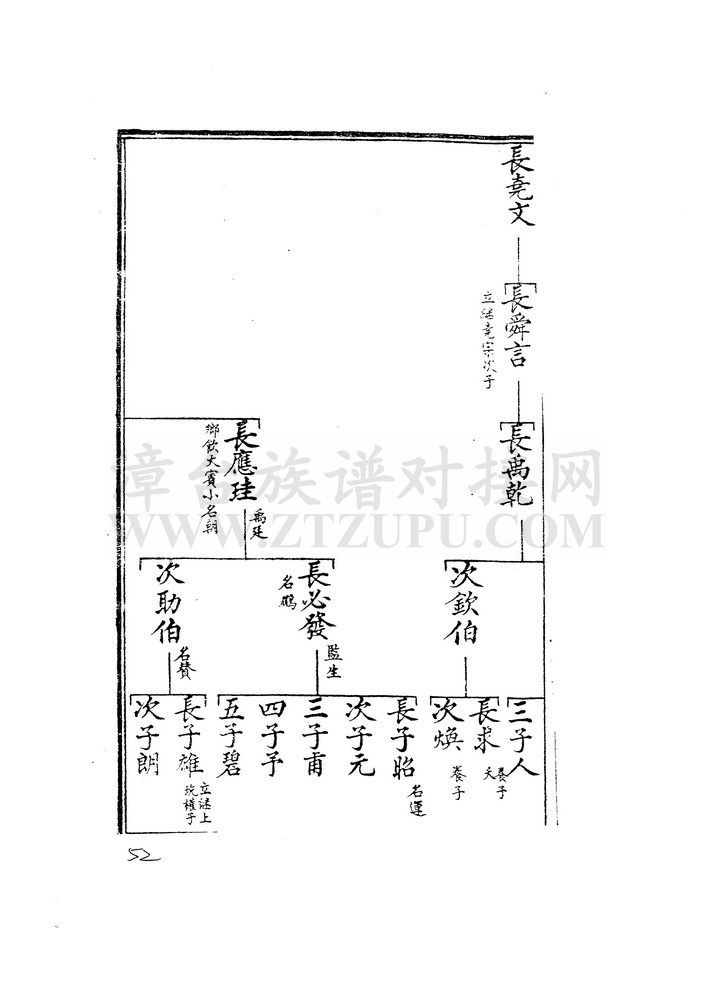 長堯文
長舜言
立継堯宗次子
長禹乾
長應珪
鄉飲大賓小名朝
禹廷
次欽伯
長必發
名鵬
監生
次助伯
名贊
三子人
長求
養子
夭
次煥
養子
長子昭
名運
次子元
三子甫
四子予
五子碧
長子雄
立謎上
坑權子
次子朗
52
章台族谱对接网
WWW.ZTZUPU.COM